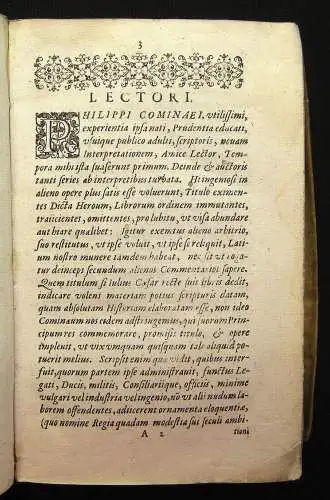 3
LECTORI.
PHILIPPI COMINAEI, vtilissimi,
experientia ipsa nati, Prudentia educati,
vsuique publico adulti, scriptoris, nouam
Interpretationem, Amice Lector, Tem-
pora mihi ista suaserunt primum. Deinde & auctoris
tanti series ab interpretibus turbata. Hi ingeniosi in
alieno opere plus satis esse voluerunt, Titulo eximen-
tes Dicta Heroum, Librorum ordinem immutantes,
traiicientes, omittentes, pro lubitu, vt visa abundare
aut hiare qualibet: Igitur exemtus alieno arbitrio,
suo restitutus, vt ipse voluit, vt ipse se reliquit, Lati-
um nostro munere tandem habeat, nec sit vt
deinceps secundum alienos Commentarios sapere.
Quem titulum si Iulius Cæsar recte suis libris dedit,
indicare volens materiam potius scripturis datam,
quam absolutam Historiam elaboratam esse, non ideo
Cominæum nos eodem adstringemus, qui quorum Prin-
cipum res commemorare, promisit titulo, & opere
impleut, vt vix vmquam quisquam tale aliquid po-
tuerit melius. Scripsit enim quæ vidit, quibus inter-
fuit, quorum partem ipse administrauit, functus Le-
gati, Ducis, militis, Consiliariique, officiis, minime
vulgari vel industria vel ingenio, nō vt alii nudum la-
borem ostendentes, adiicerent ornamenta eloquentiæ,
(quo nomine Regia quadam modestia sui seculi ambi-
A 2 tioni